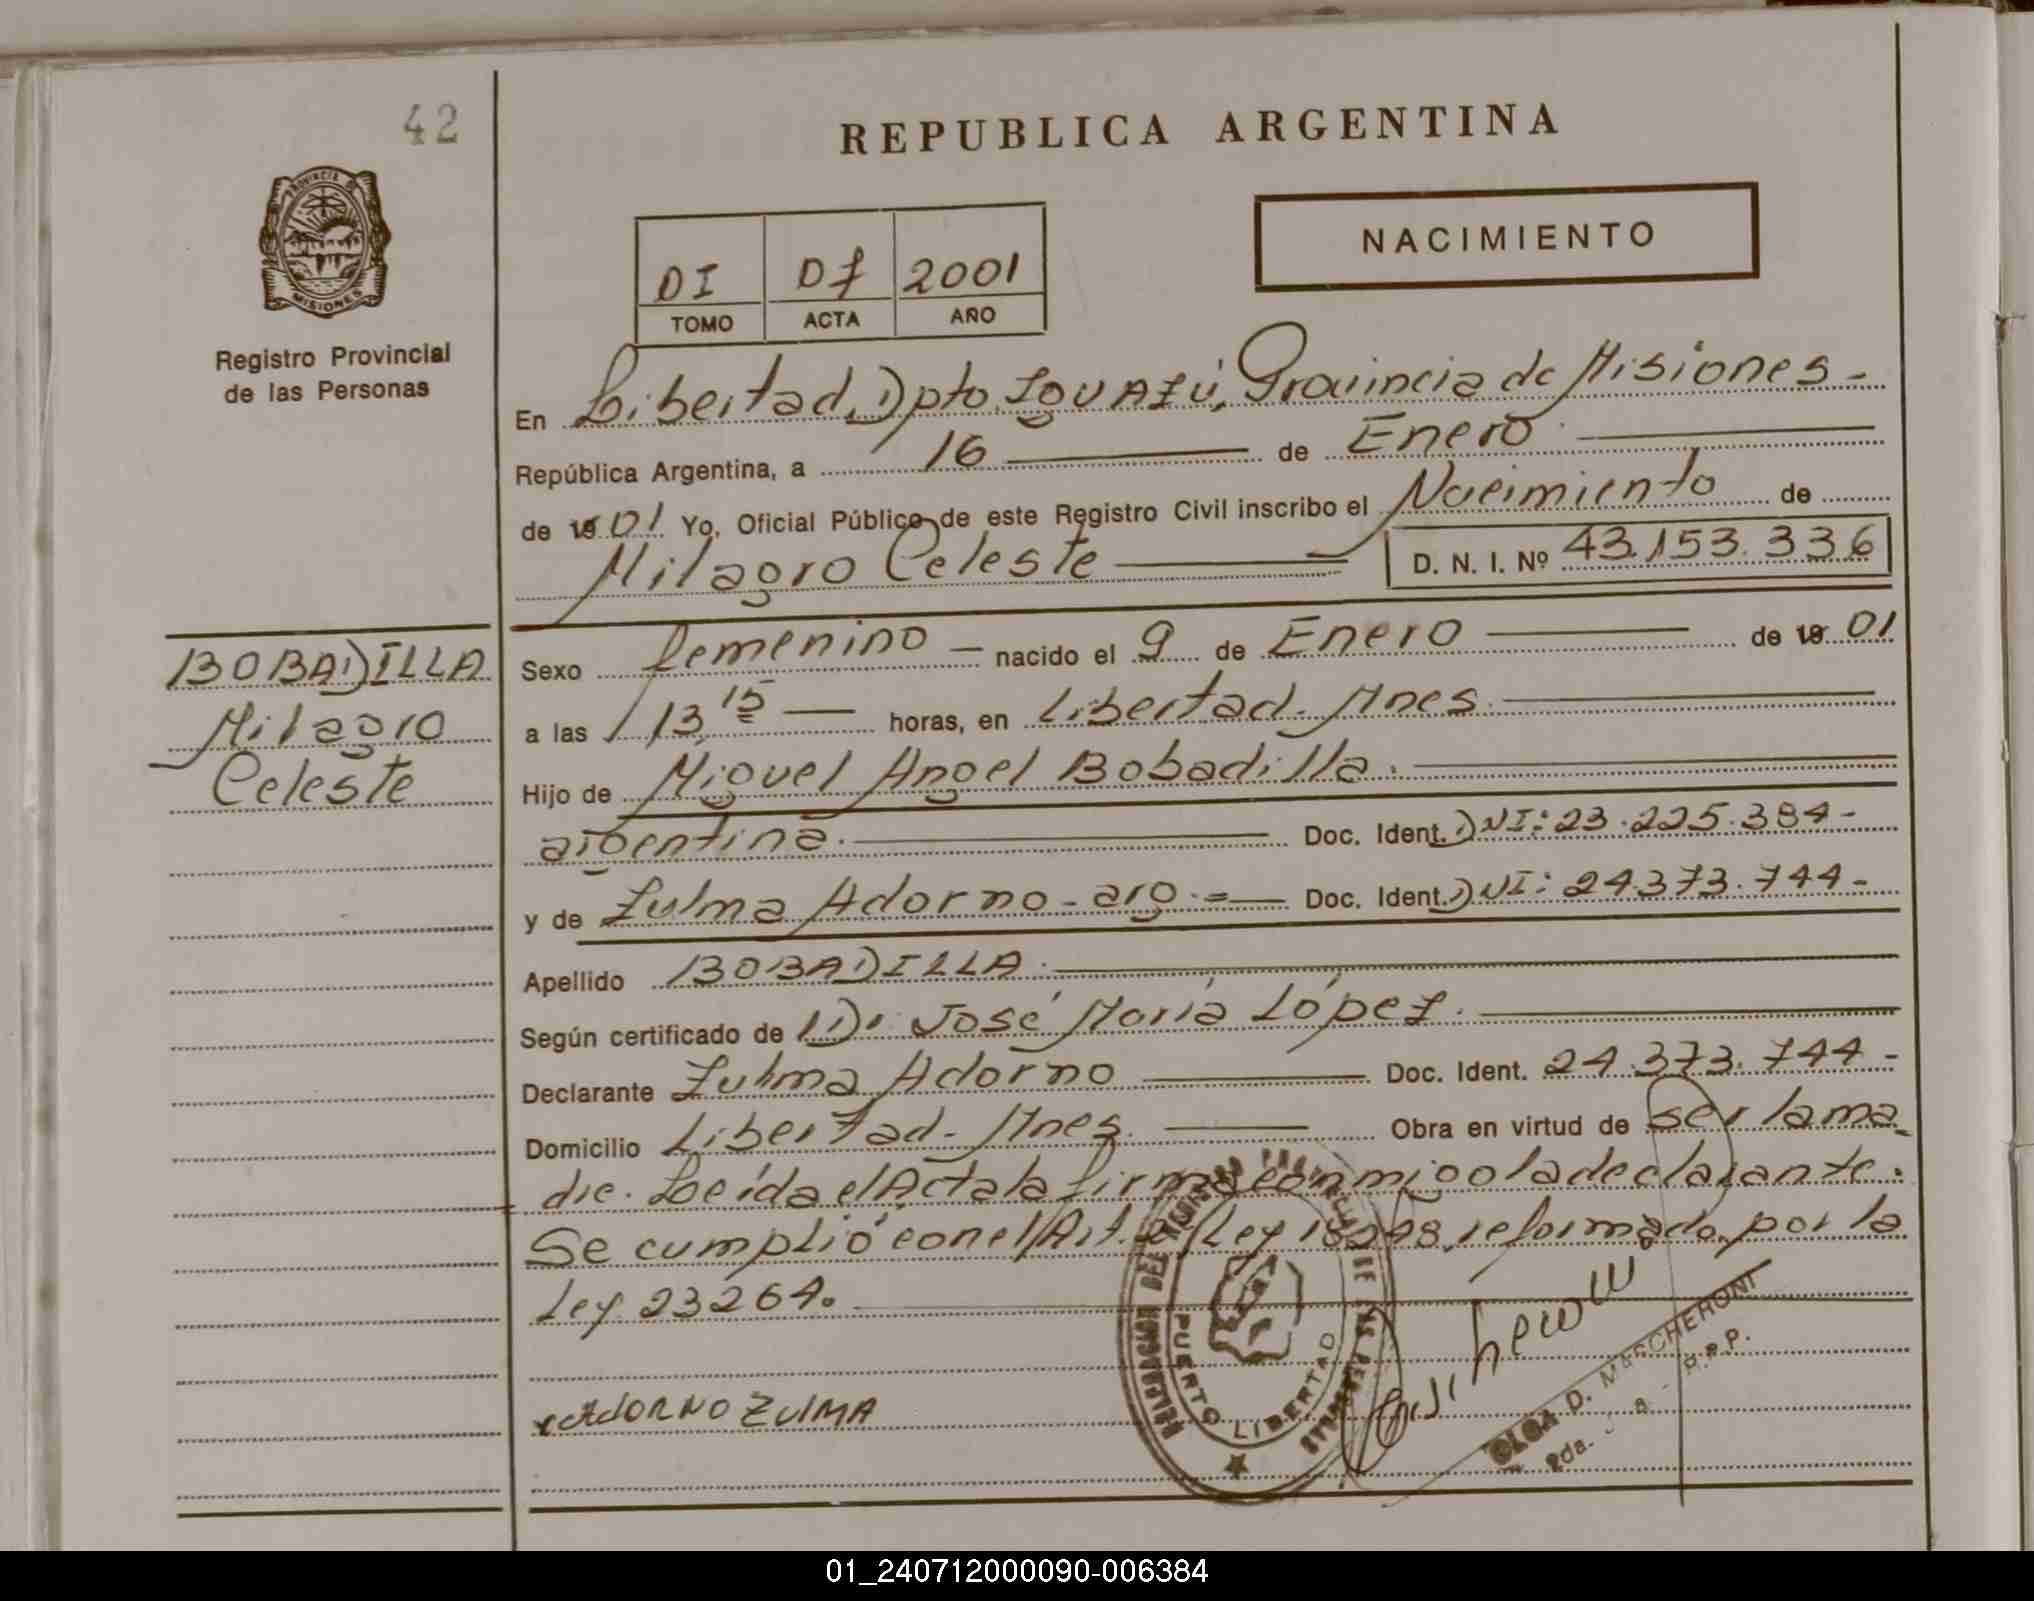 42
REPUBLICA ARGENTINA
NACIMIENTO
PROVINCIA DE
MISIONES
DI D7 2001
TOMO ACTA AÑO
Registro Provincial
de las Personas
En Libertad, Dpto. IGUAZÚ, Provincia de Misiones-
República Argentina, a 16 de Enero
de 1901 Yo, Oficial Público de este Registro Civil inscribo el Nacimiento de
Milagro Celeste D. N. I. Nº 43.153.336
BOBADILLA
Milagro
Celeste
Sexo femenino - nacido el 9 de Enero de 19 01
a las 13,15 horas, en Libertad. Mnes.
Hijo de Miguel Angel Bobadilla.
argentina. Doc. Ident. DNI: 23.225.384-
y de Zulma Adorno - arg.= Doc. Ident. DNI: 24.373.744-
Apellido BOBADILLA.
Según certificado de Dr. José María López.
Declarante Zulma Adorno Doc. Ident. 24.373.744-
Domicilio Libertad - Mnes. Obra en virtud de ser la ma
dre. Leída el Acta la firma conmigo la declarante.
Se cumplió con el Art. Ley 18248, reformado por la
Ley 23264.
ADORNO ZULMA
PUERTO LIBERTAD
OLGA D. MASCHERONI
2da.
R.P.P.
01_240712000090-006384